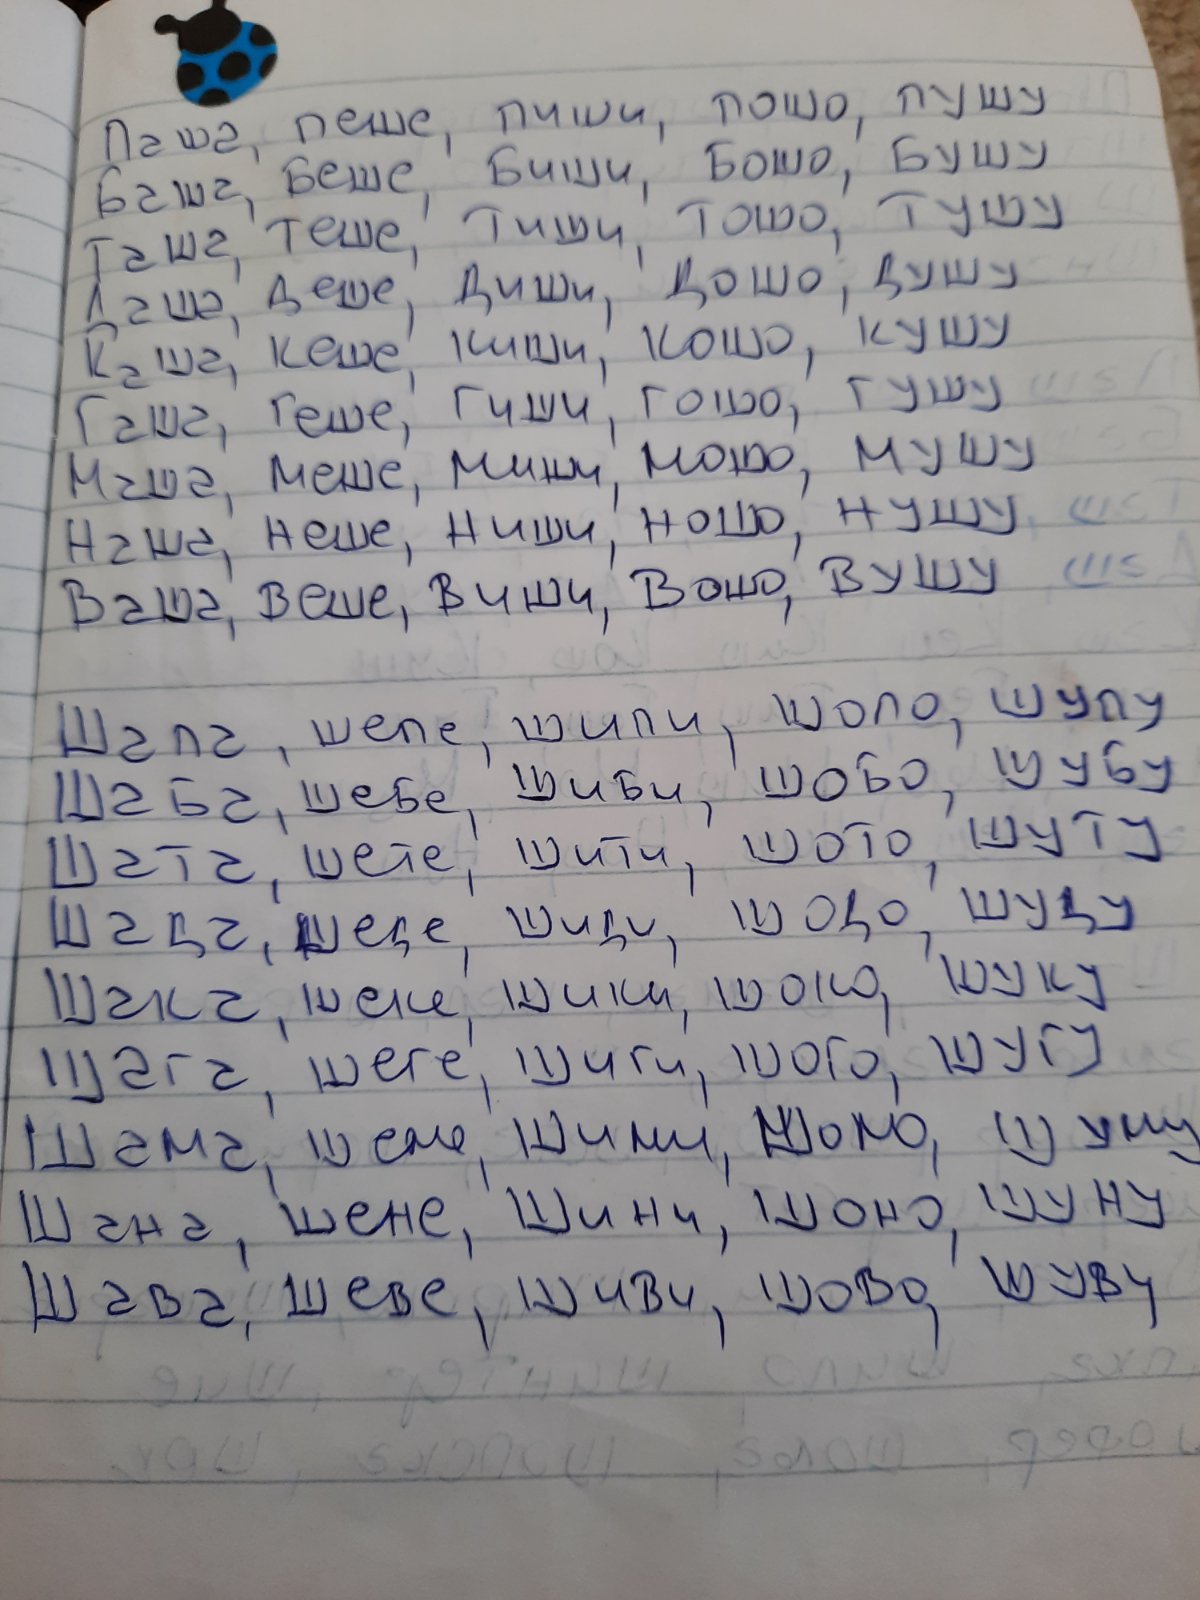 Паша, пеше, пиши, пошо, пушу
Баша, Беше, Биши, Бошо, Бушу
Таша, Теше, Тиши, Тошо, Тушу
Даша, Деше, Диши, Дошо, Душу
Каша, Кеше, Киши, Кошо, Кушу
Гаша, Геше, Гиши, Гошо, Гушу
Маша, Меше, Миши, Мошо, Мушу
Наша, Неше, Ниши, Ношо, Нушу
Ваша, Веше, Виши, Вошо, Вушу
Шапа, шепе, шипи, шопо, шупу
Шаба, шебе, шиби, шобо, шубу
Шата, шете, шити, шото, шуту
Шада, шеде, шиди, шодо, шуду
Шака, шеке, шики, шоко, шуку
Шага, шеге, шиги, шого, шугу
Шама, шеме, шими, шомо, шуму
Шана, шене, шини, шоно, шуну
Шава, шеве, шиви, шово, шуву